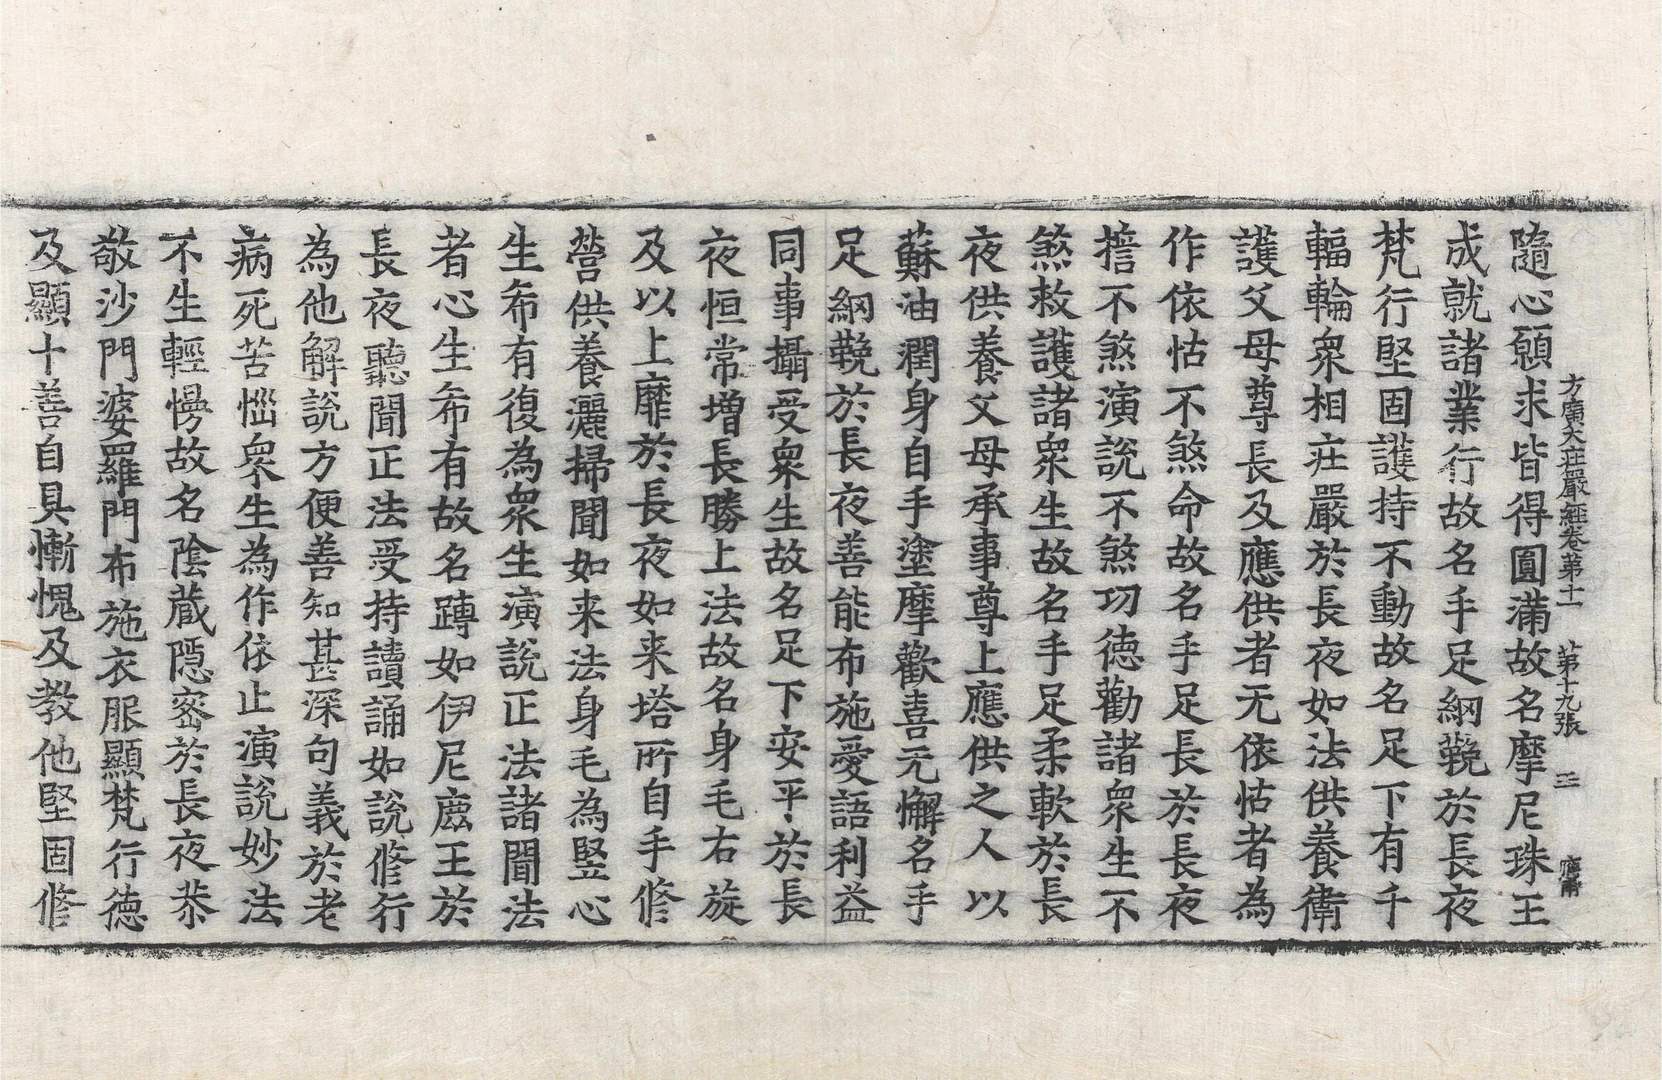 方廣大莊嚴經卷第十一　第十九張　三　應甫
隨心願求皆得圓滿故名摩尼珠王
成就諸業行故名手足網鞔於長夜
梵行堅固護持不動故名足下有千
輻輪衆相莊嚴於長夜如法供養衛
護父母尊長及應供者无依怙者為
作依怙不煞命故名手足長於長夜
擔不煞演說不煞功德勸諸衆生不
煞救護諸衆生故名手足柔軟於長
夜供養父母承事尊上應供之人以
蘇油潤身自手塗摩歡喜无懈名手
足網鞔於長夜善能布施愛語利益
同事攝受衆生故名足下安平於長
夜恒常增長勝上法故名身毛右旋
及以上靡於長夜如来塔所自手修
營供養灑掃聞如来法身毛為竪心
生希有復為衆生演說正法諸聞法
者心生希有故名蹲如伊尼鹿王於
長夜聽聞正法受持讀誦如說修行
為他解說方便善知甚深句義於老
病死苦惱衆生為作依止演說妙法
不生輕慢故名陰藏隱密於長夜恭
敬沙門婆羅門布施衣服顯梵行德
及顯十善自具慚愧及教他堅固修